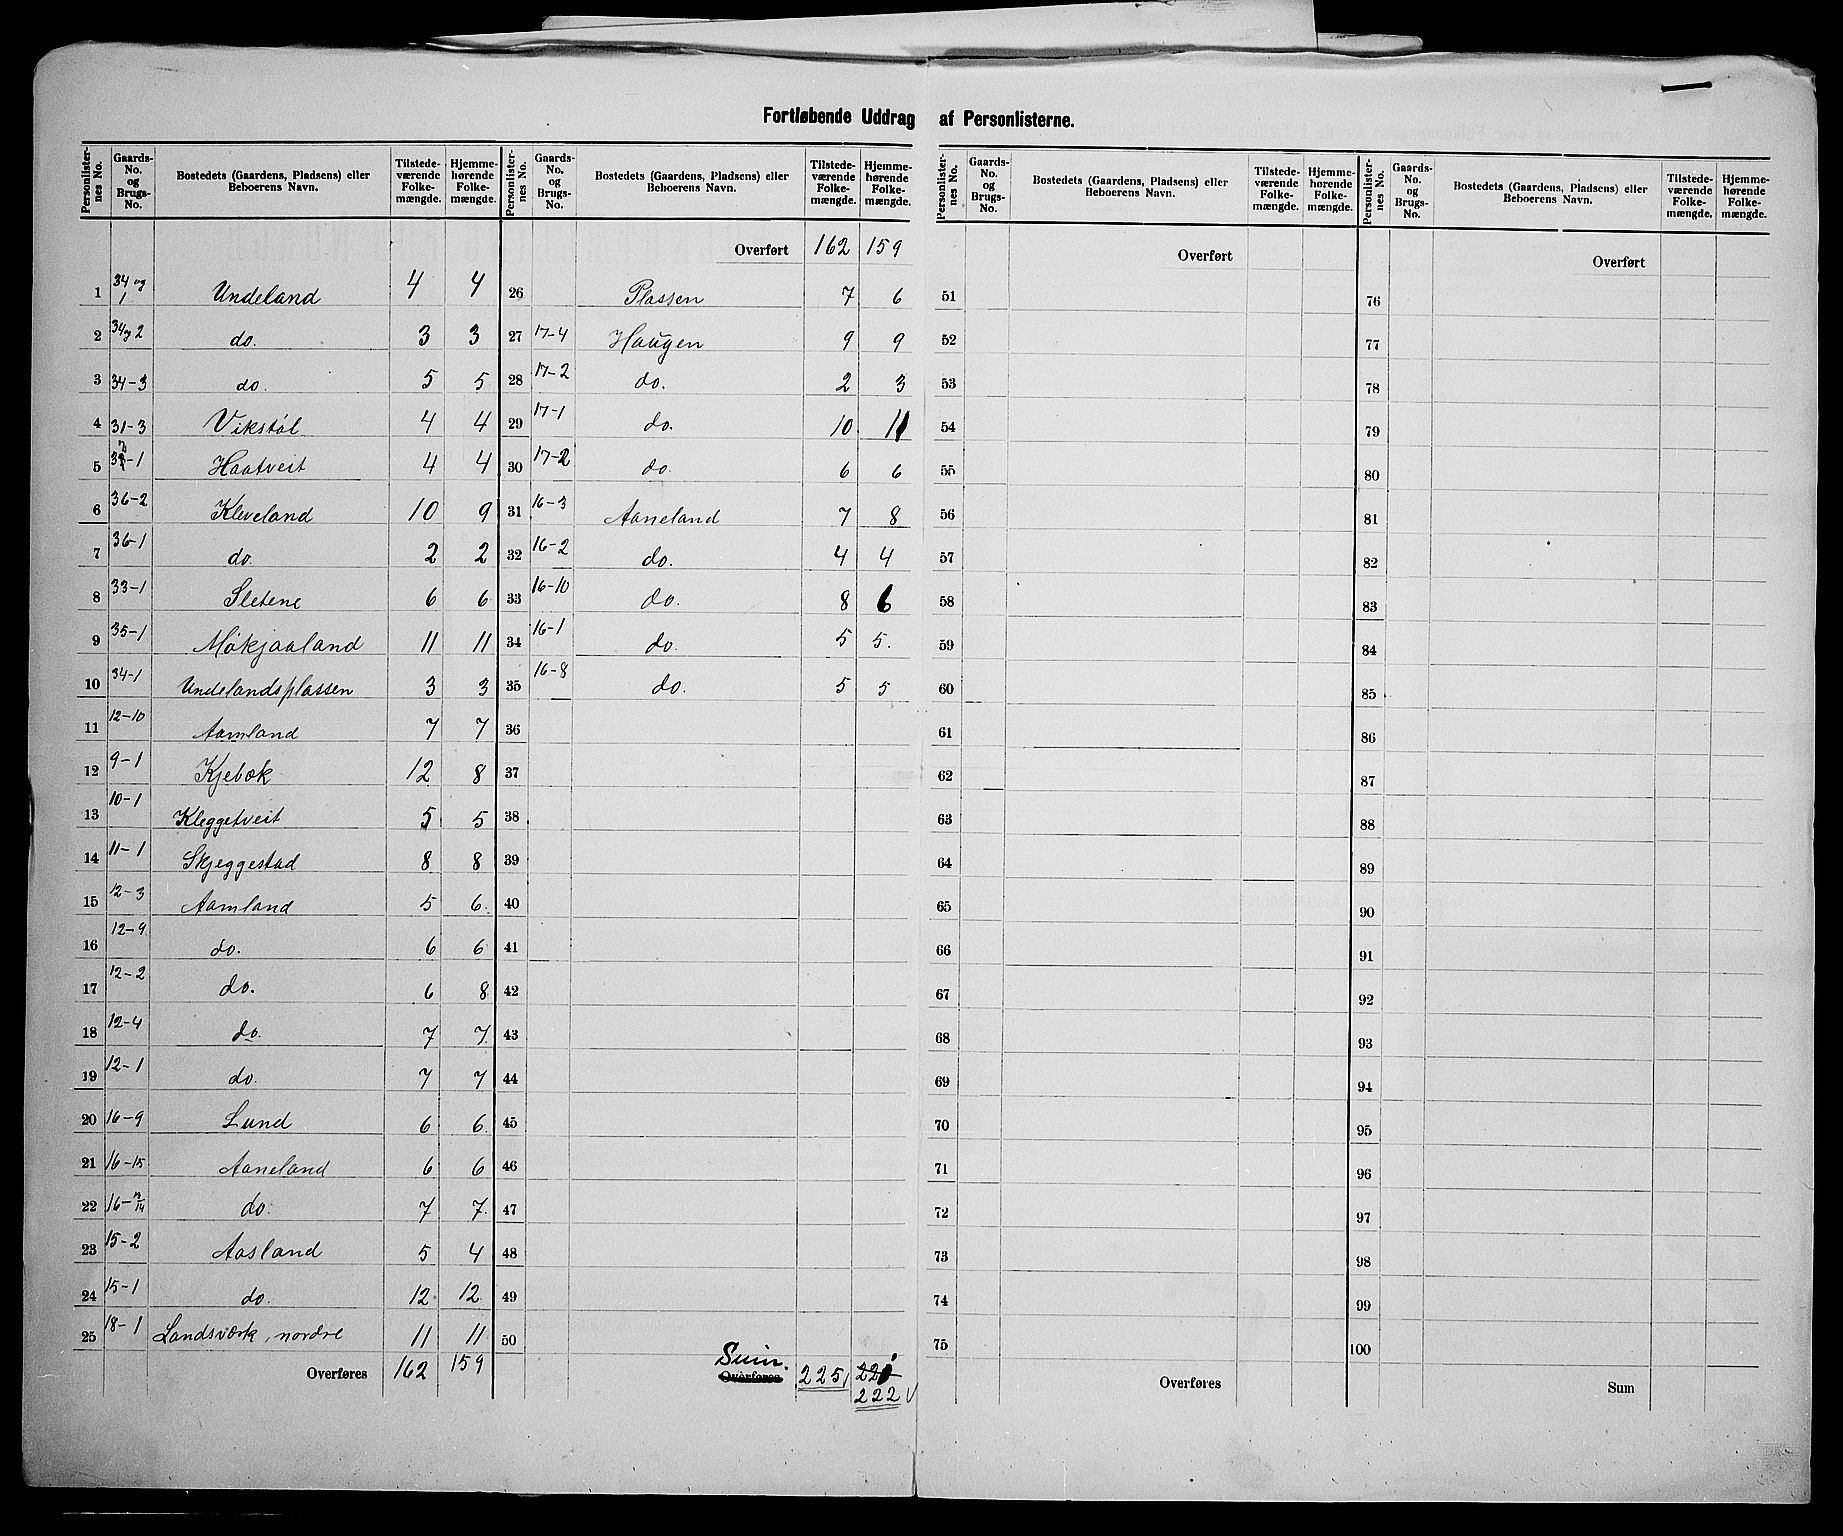 Fortløbende Uddrag af Personlisterne.
Personlisternes No. | Gaards-No. og Brugs-No. | Bostedets (Gaardens, Pladsens) eller Beboerens Navn. | Tilstedeværende Folkemængde. | Hjemmehørende Folkemængde.
1 34 og 1 Undeland 4 4
2 34 og 2 do. 3 3
3 34-3 do. 5 5
4 31-3 Vikstøl 4 4
5 -1 Haatveit 4 4
6 36-2 Kleveland 10 9
7 36-1 do. 2 2
8 33-1 Sletene 6 6
9 35-1 Møkjaaland 11 11
10 34-1 Undelandsplassen 3 3
11 12-10 Aamland 7 7
12 9-1 Kjebæk 12 8
13 10-1 Kleggetveit 5 5
14 11-1 Skjeggestad 8 8
15 12-3 Aamland 5 6
16 12-9 do. 6 6
17 12-2 do. 6 8
18 12-4 do. 7 7
19 12-1 do. 7 7
20 16-9 Lund 6 6
21 16-15 Aaneland 6 6
22 16-/14 do. 7 7
23 15-2 Aasland 5 4
24 15-1 do. 12 12
25 18-1 Landsværk, nordre 11 11
Overføres 162 159
Personlisternes No. | Gaards-No. og Brugs-No. | Bostedets (Gaardens, Pladsens) eller Beboerens Navn. | Tilstedeværende Folkemængde. | Hjemmehørende Folkemængde.
Overført 162 159
26 Plassen 7 6
27 17-4 Haugen 9 9
28 17-2 do. 2 3
29 17-1 do. 10 11
30 17-2 do. 6 6
31 16-3 Aaneland 7 8
32 16-2 do. 4 4
33 16-10 do. 8 6
34 16-1 do. 5 5.
35 16-8 do. 5 5
36
37
38
39
40
41
42
43
44
45
46
47
48
49
50
Sum. Overføres 225 221
222 V
Personlisternes No. | Gaards-No. og Brugs-No. | Bostedets (Gaardens, Pladsens) eller Beboerens Navn. | Tilstedeværende Folkemængde. | Hjemmehørende Folkemængde.
Overført
51
52
53
54
55
56
57
58
59
60
61
62
63
64
65
66
67
68
69
70
71
72
73
74
75
Overføres
Personlisternes No. | Gaards-No. og Brugs-No. | Bostedets (Gaardens, Pladsens) eller Beboerens Navn. | Tilstedeværende Folkemængde. | Hjemmehørende Folkemængde.
Overført
76
77
78
79
80
81
82
83
84
85
86
87
88
89
90
91
92
93
94
95
96
97
98
99
100
Sum